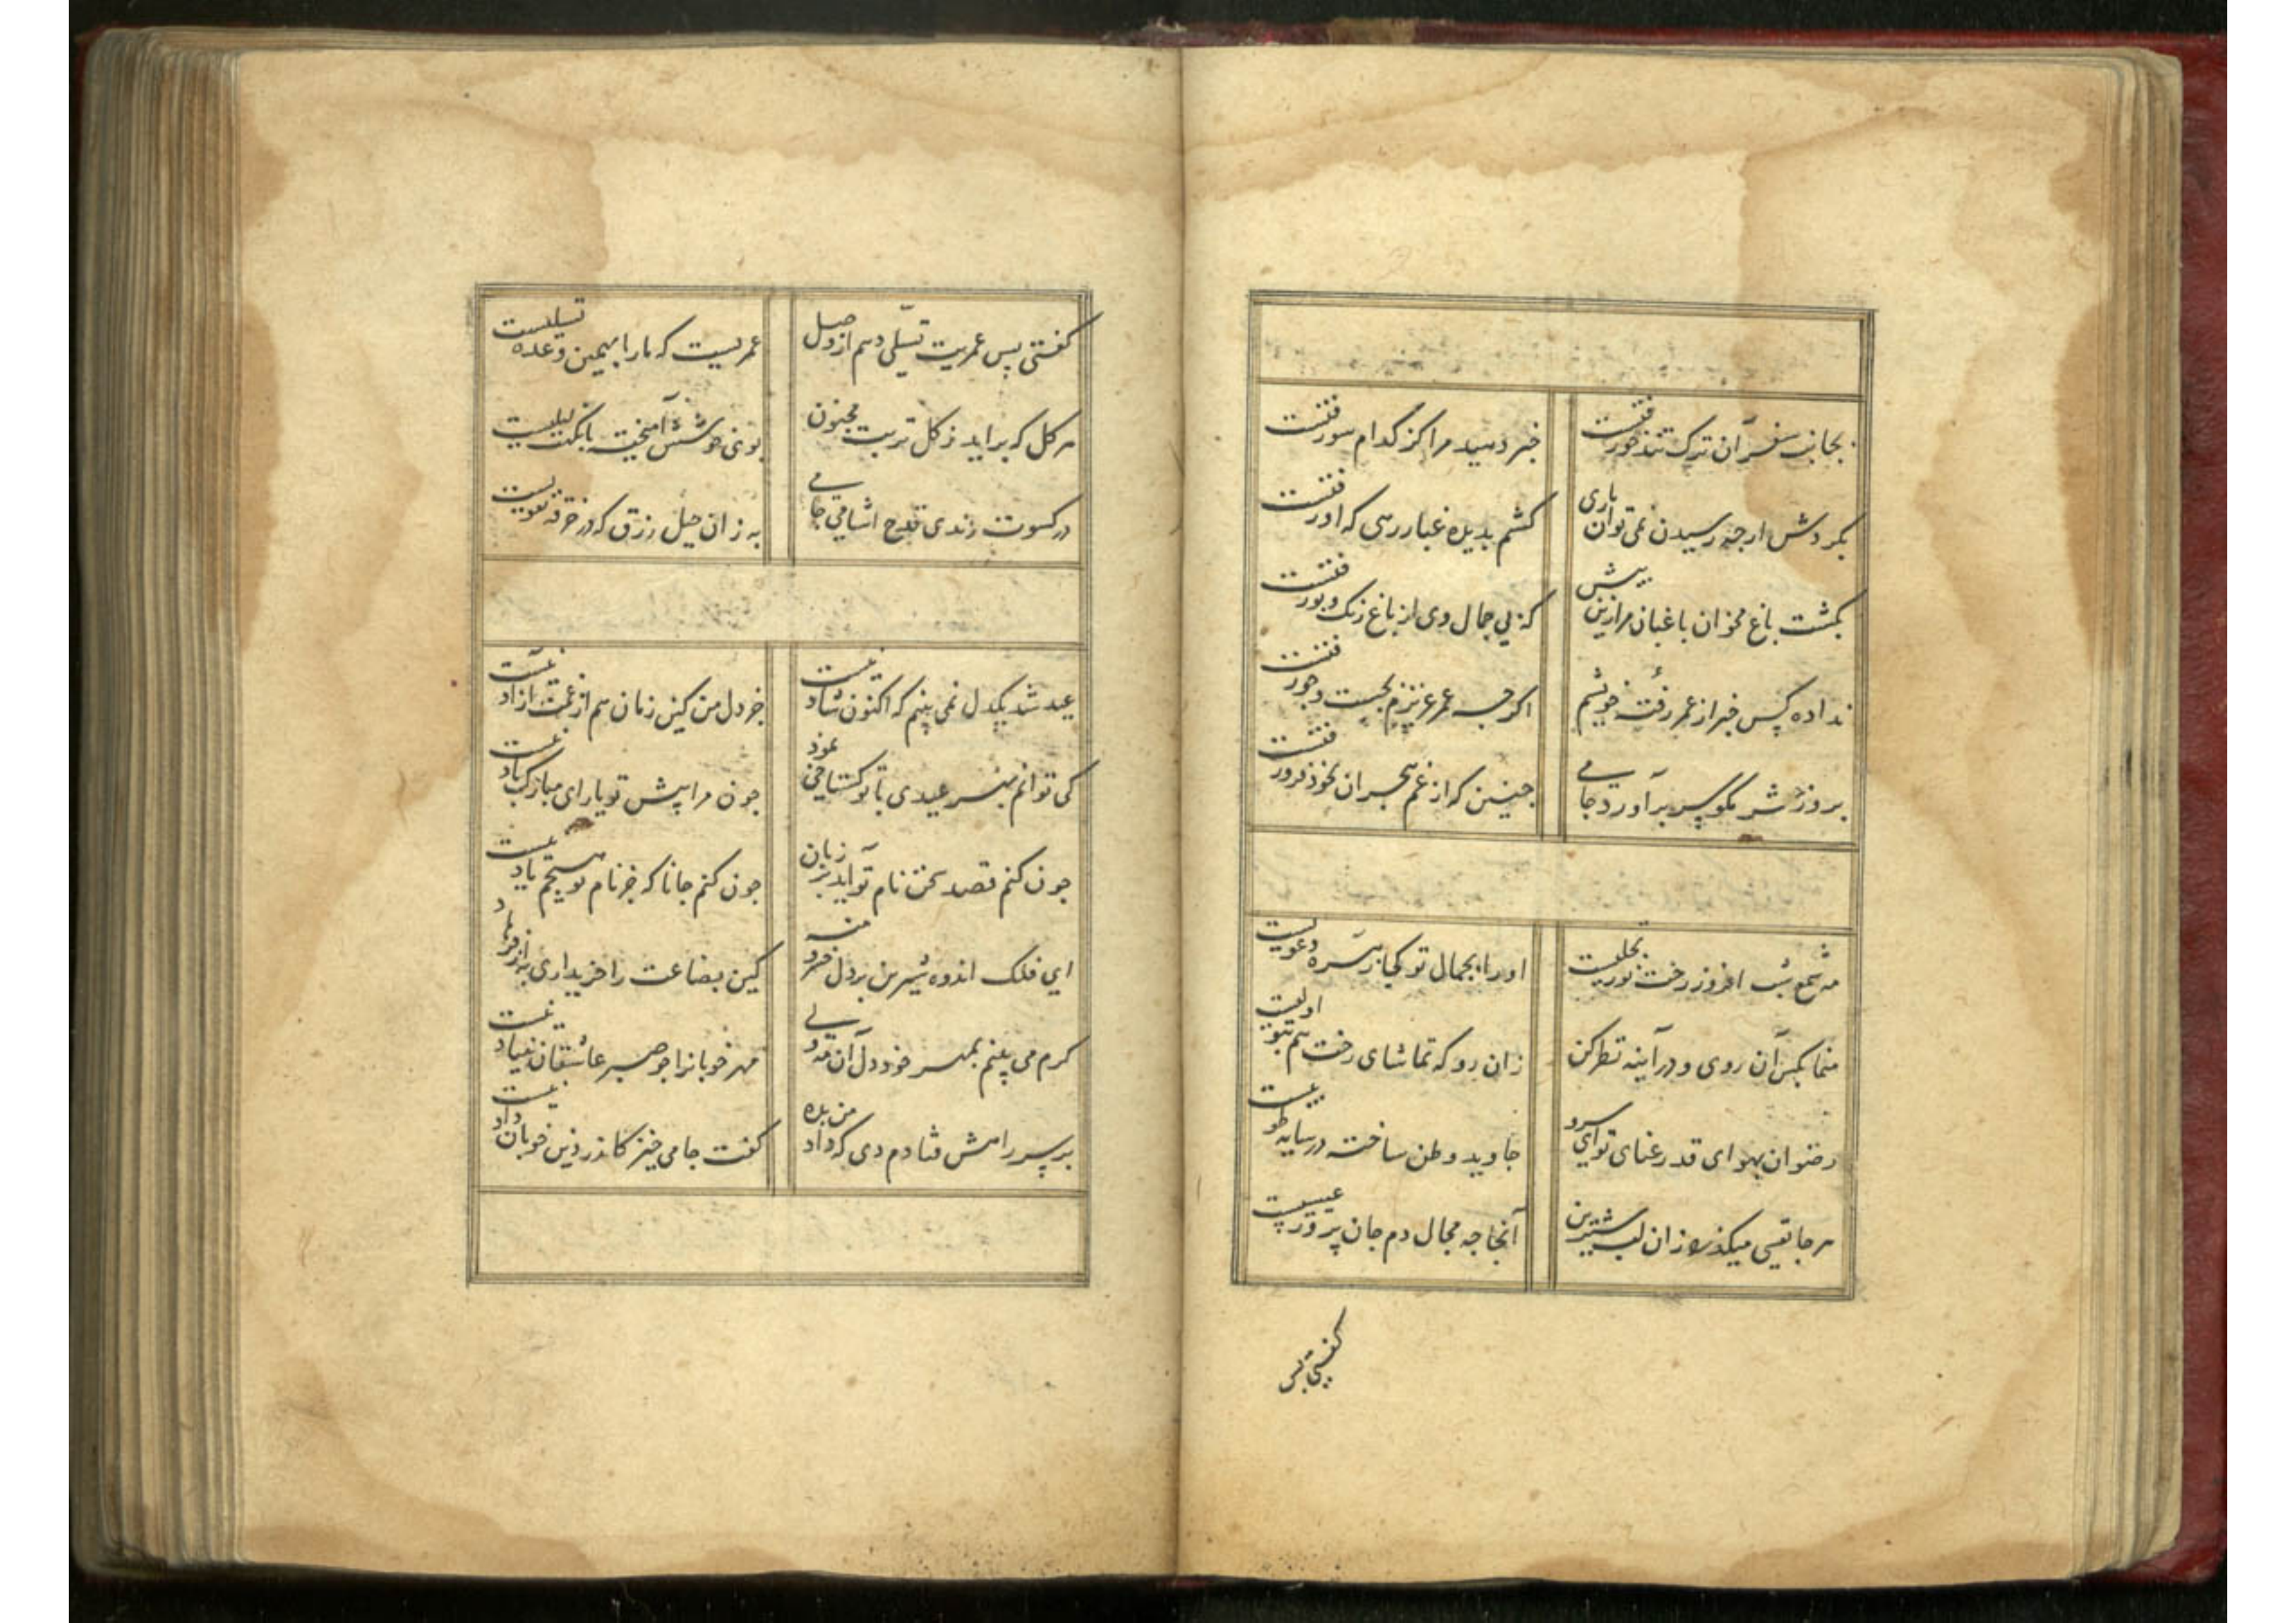 بجانب سفر آن ترک تندخو رفتست
خبر دهید مرا کز کدام سو رفتست
بکردش ارجه رسیدن نمی توان باری
کشم بدیده غبار رهی که او رفتست
بکشت باغ مخوان باغبان مرا زین پیش
که بی جمال وی از باغ رنک و بو رفتست
نداده کس خبر از عمر رفته خویشم
اکرجه عمر عزیزم بجست و جو رفتست
بروز حشر مکو سر برآورد جامی
جنین که از غم هجران بخود فرو رفتست
مه شمع شب افروز رخت نور تجلیست
او را بجمال تو کجا زهره دعویست
منما بکس آن روی و در آینه نظر کن
زان رو که تماشای رخت هم بتو اولیست
رضوان بهوای قد رعنای تو ای سرو
جاوید وطن ساخته در سایه طوبیست
هر جا نفسی میکذرد زان لب شیرین
آنجا جه مجال دم جان پرور عیسیست
کفتی پس
کفتی پس عمریت تسلی دهم از وصل
عمریست که ما را بهمین وعده تسلیست
هر کل که براید ز کل تربت مجنون
بوئی خوشش آمیخته با نکهت لیلیست
در کسوت رندی قدح اشامی جامی
به زان حیل و زرق که در خرقه تقویست
عید شد یکدل نمی بینم که اکنون شاد نیست
جز دل من کین زمان هم از غمت ازاد نیست
کی توانم بهر عیدی با تو کستاخی نمود
جون مرا پیش تو یارای مبارکباد نیست
جون کنم قصد سخن نام تو آید بر زبان
جون کنم جانا که جز نام تو هیجم یاد نیست
ای فلک اندوه شیرین بر دل خسرو منه
کین بضاعت را خریداری به از فرهاد
کرم می بینم بمهر خود دل آن مه ولی
مهر خوبان را جو صبر عاشقان بنیاد نیست
بر سر راهش فتادم دی که داد من بده
کفت جامی خیز کاندر دین خوبان داد نیست